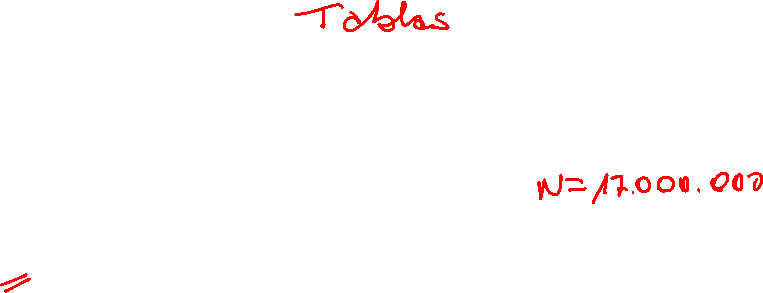 Tablas
N=17.000.000
=